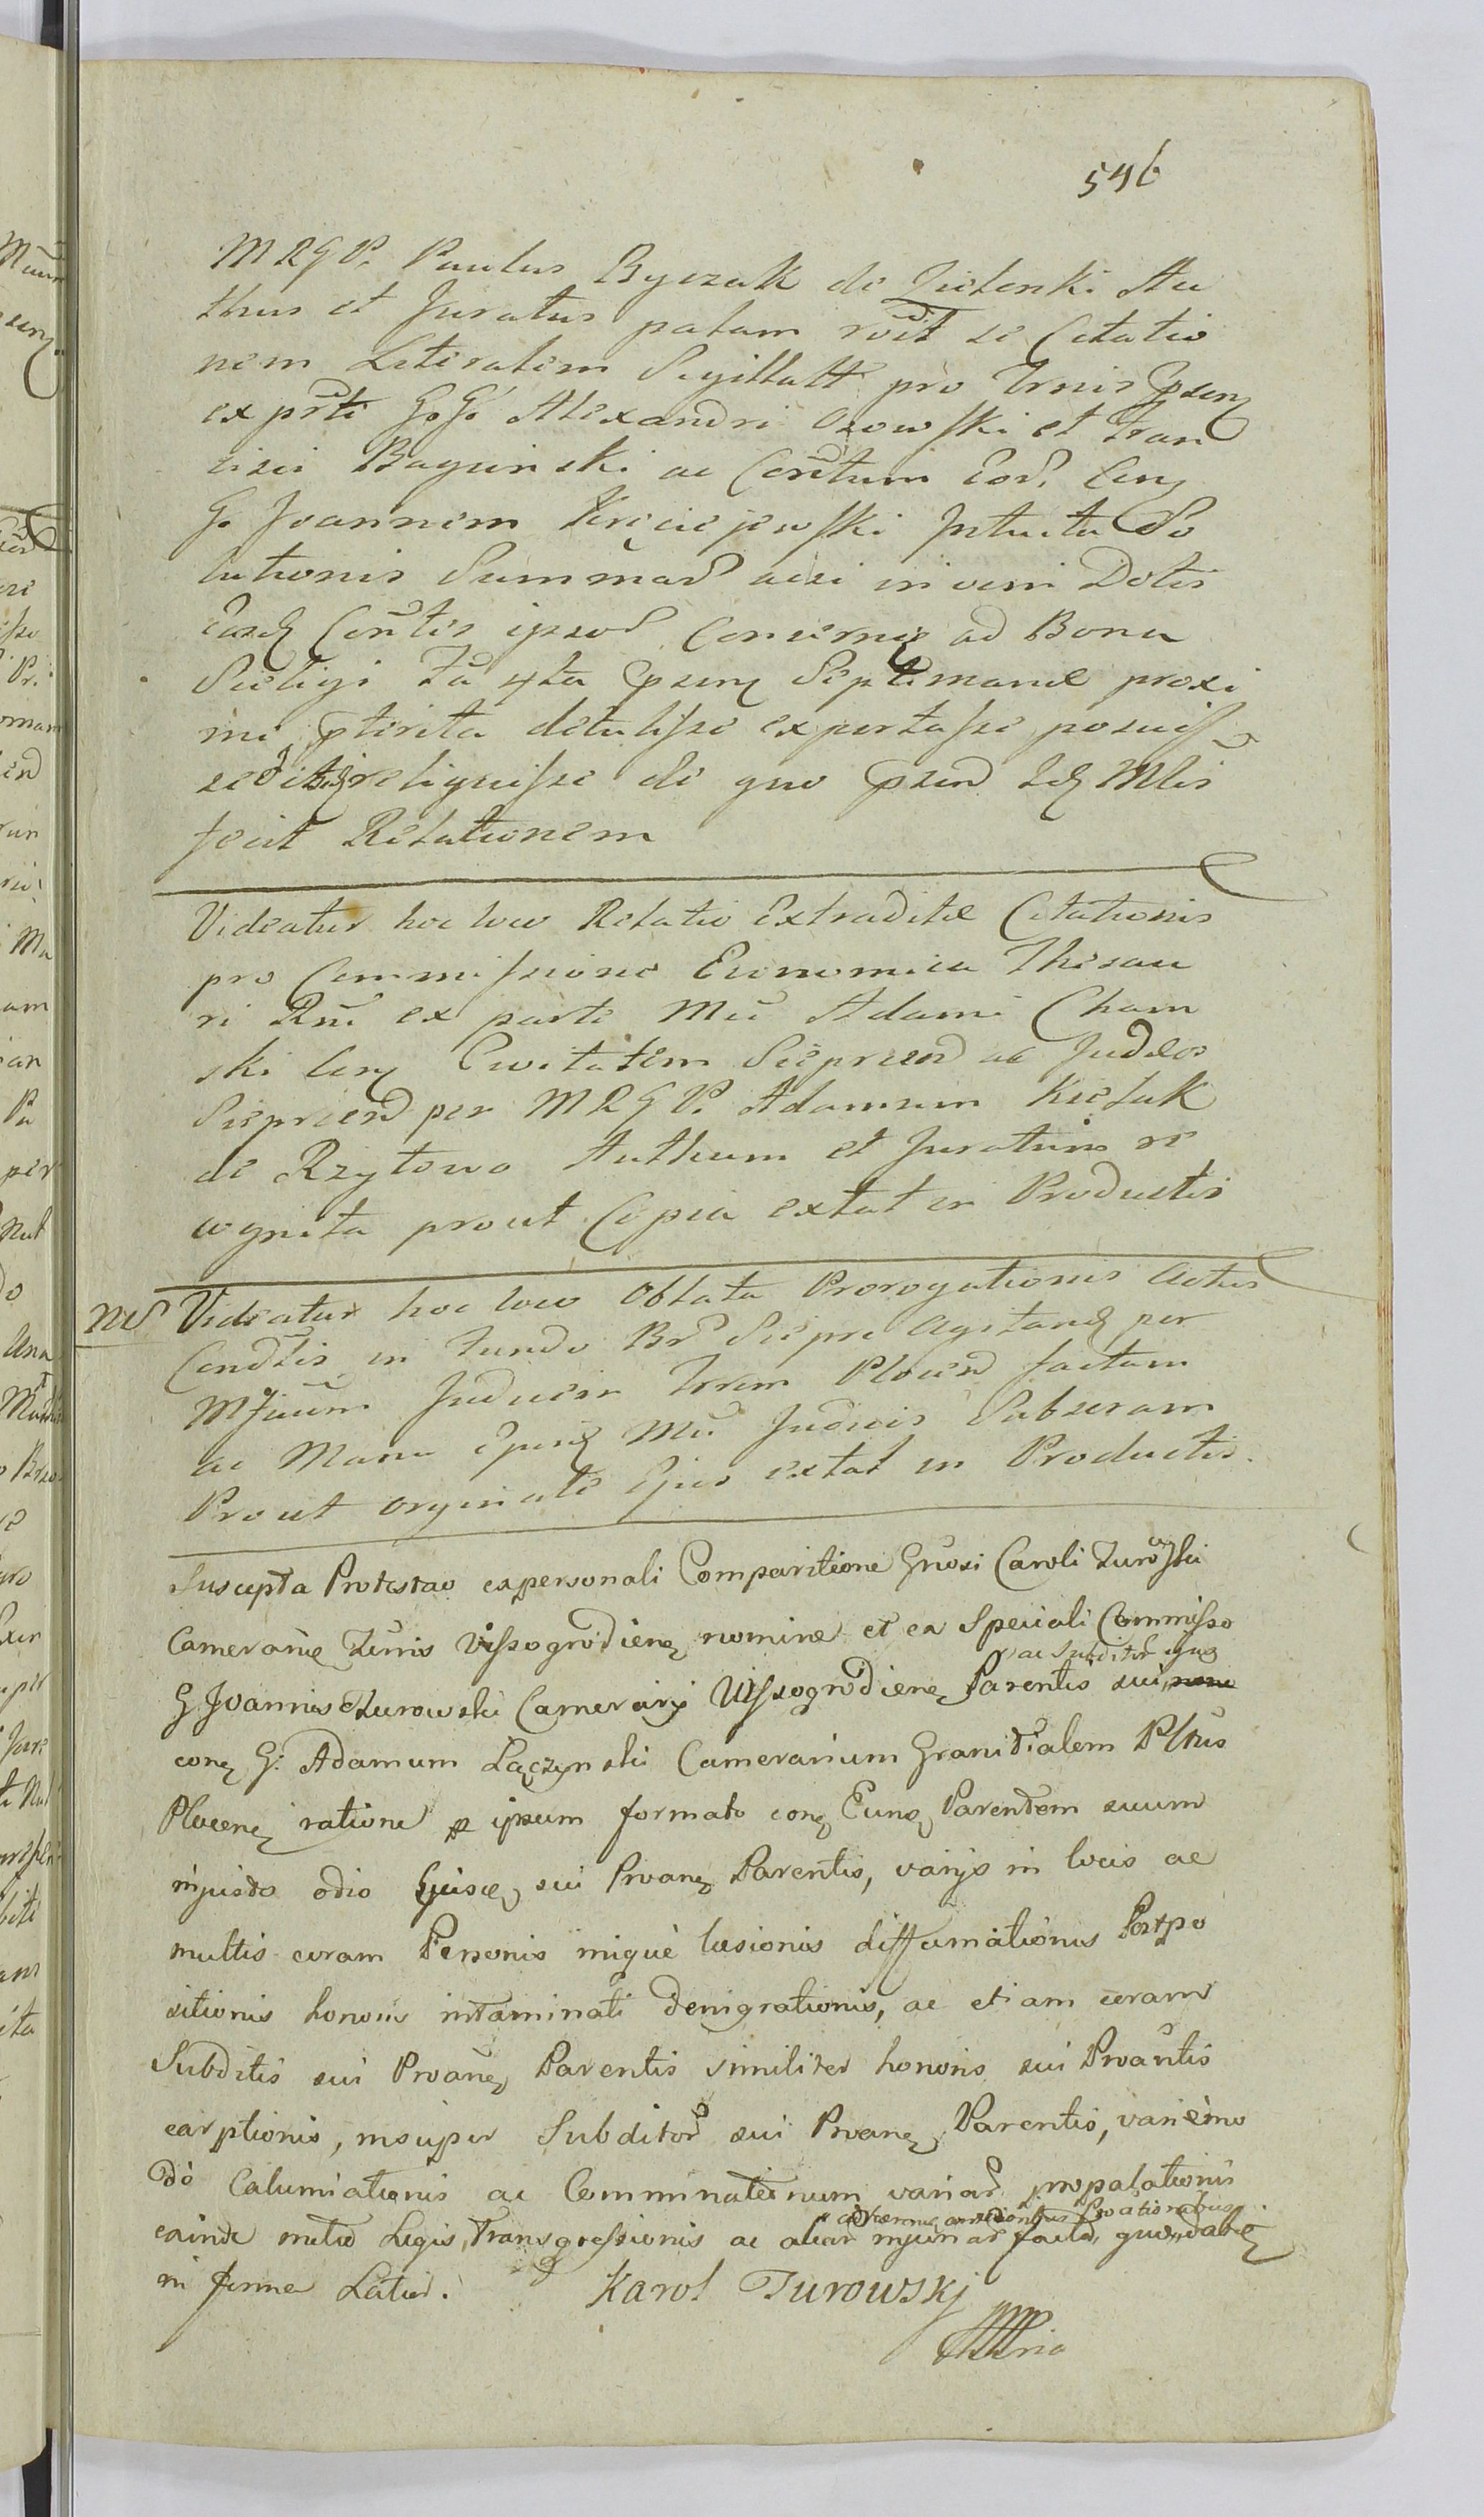 546
MRGP. Paulus Byczak de Zielonki Au
thus et Juratus palam rcdt se Citatio
nem Literalem Sigillatt pro Trnis
ex prti G.G. Alexandri Osowski et Fran
cisci Baginski ac Contum Eod.
G. Joannem Intuitu So
lutionis Summar Dotis
Concerne ad Bona
Septimanæ proxi
me ptirita detulisse exportasse posuis
reliquisse de quo
fecit Relationem
Videatur hoc loco Relatio Extraditæ Citationis
pro Commissione Economica Thesau
ri Rni ex parte Mci Adami Cham
ski Civitatem Sieprcen ac Judæos
Sieprcen per MRGP. Adamum Kieľak
de Rzytowo Authum et Juratum re
cognita prout Copia extat in Productis
Videatur hoc loco Oblata Prorogationis Actus
Condtis in Fundo Br Siepre Agitand per
Judicem Trrem Plocen factam
ac Manu Mci Judicis Subscram
Prout originale Ejus extat in Productis.
Suscepta Protestao ex personali Comparitione Gnosi Caroli Turowski
Camerarie Terris Wissogrodien nomine et ex Speciali Commisso
ac Subditor
G Joannis Turowski Camerarij Wissogrodiene Parentis sui
cone G: Adamum Łączynski Camerarium Granitialem Pltus
Plocene ratione p ipsum formato cone Eunq Parentem suum
injusto odio sui Prvane Parentis, varijs in locis ac
multis coram Personis inique læsionis diffamationis Postpo
sitionis honoris intaminati denigrationis, ac etiam coram
Subditis sui Prvane Parentis similiter honoris sui Prvantis
carptionis, insuper Subditor sui Prvane Parentis, variemo
do Calumiationis ac Comminationum variar propalationis
exinde metio Legis Transgressionis ac aliar injuriar facta,
in forma Latior. Karol Turowskj